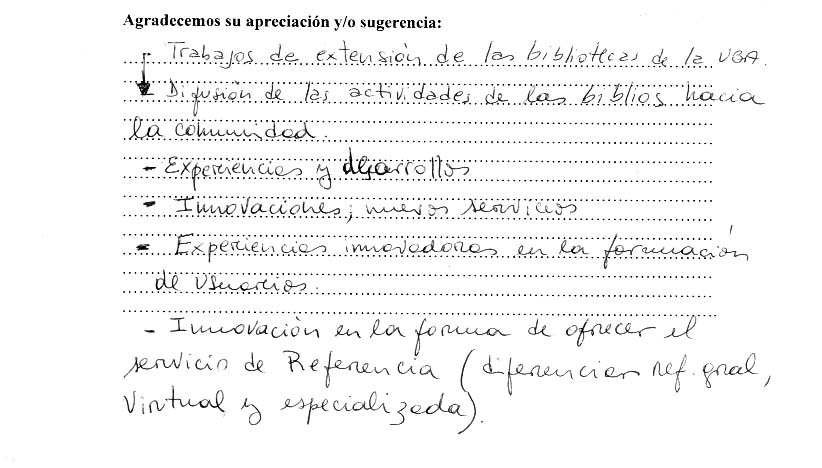 Agradecemos su apreciación y/o sugerencia:
- Trabajos de extensión de las bibliotecas de la UBA.
Difusión de las actividades de las biblios hacia
la comunidad.
- Experiencias y desarrollos
- Innovaciones; nuevos servicios
- Experiencias innovadoras en la formación
de usuarios.
- Innovación en la forma de ofrecer el
servicio de Referencia (diferenciar ref. gral,
virtual y especializada).